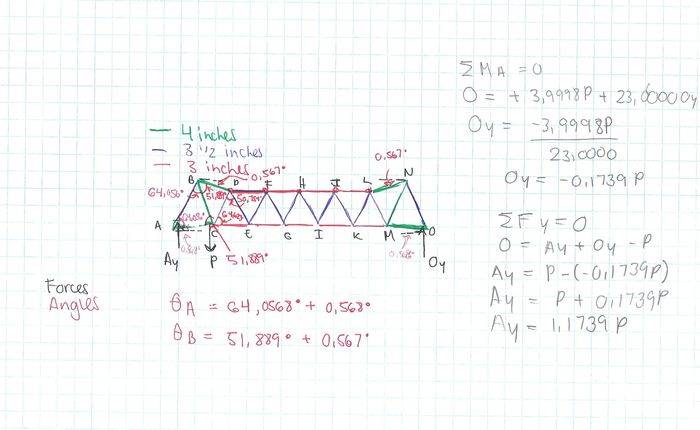 — 4 inches
— 3 1/2 inches
— 3 inches
0,567°
0,567°
B D F H J L N
64,056° 51,889° 50,784°
A C E G I K M O
0,568°
Ay P 51,889° Oy
Forces
Angles
θA = 64,0568° + 0,568°
θB = 51,889° + 0,567°
ΣMA = 0
0 = + 3,9998P + 23,0000Oy
Oy = -3,9998P
23,0000
Oy = -0,1739 P
ΣFy = 0
0 = Ay + Oy - P
Ay = P - (-0,1739P)
Ay = P + 0,1739P
Ay = 1,1739 P